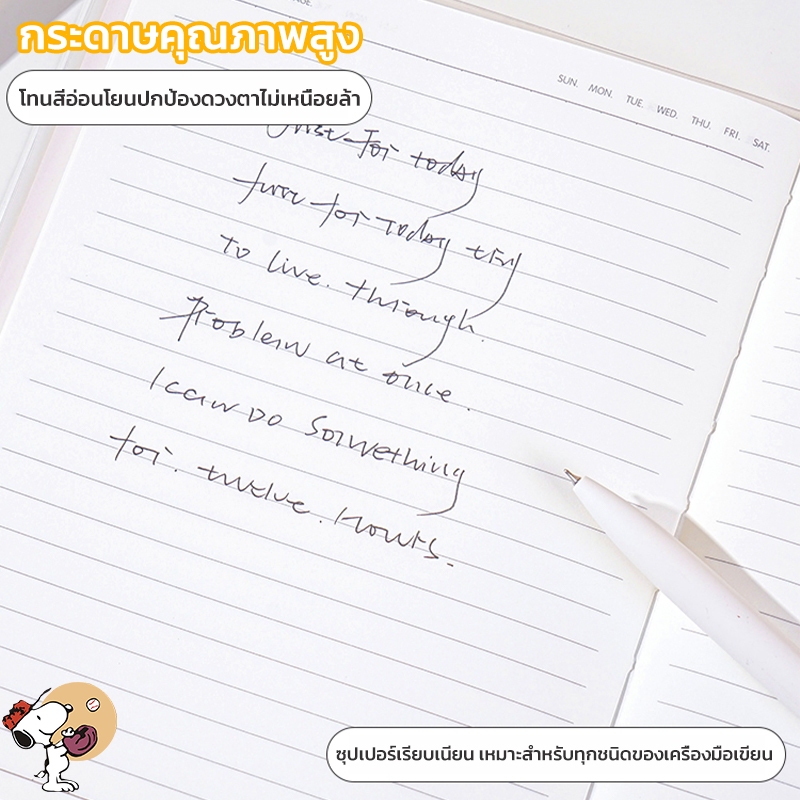 กระดาษคุณภาพสูง
โทนสีอ่อนโยนปกป้องดวงตาไม่เหนื่อยล้า
SUN. MON. TUE. WED. THU. FRI. SAT.
Just for today
for today try
to live. through.
Problem at once.
I can Do Something
for. twelve. Hours.
ซุปเปอร์เรียบเนียน เหมาะสำหรับทุกชนิดของเครื่องมือเขียน